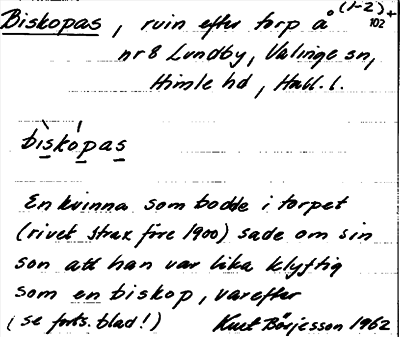 (1-2)+
Biskopas, ruin efter torp å 102
nr 8 Lundby, Valinge sn,
Himle hd, Hall. l.
bìskópas
En kvinna som bodde i torpet
(rivet strax före 1900) sade om sin
son att han var lika klyftig
som en biskop, varefter
(se forts. blad!) Kurt Börjesson 1962